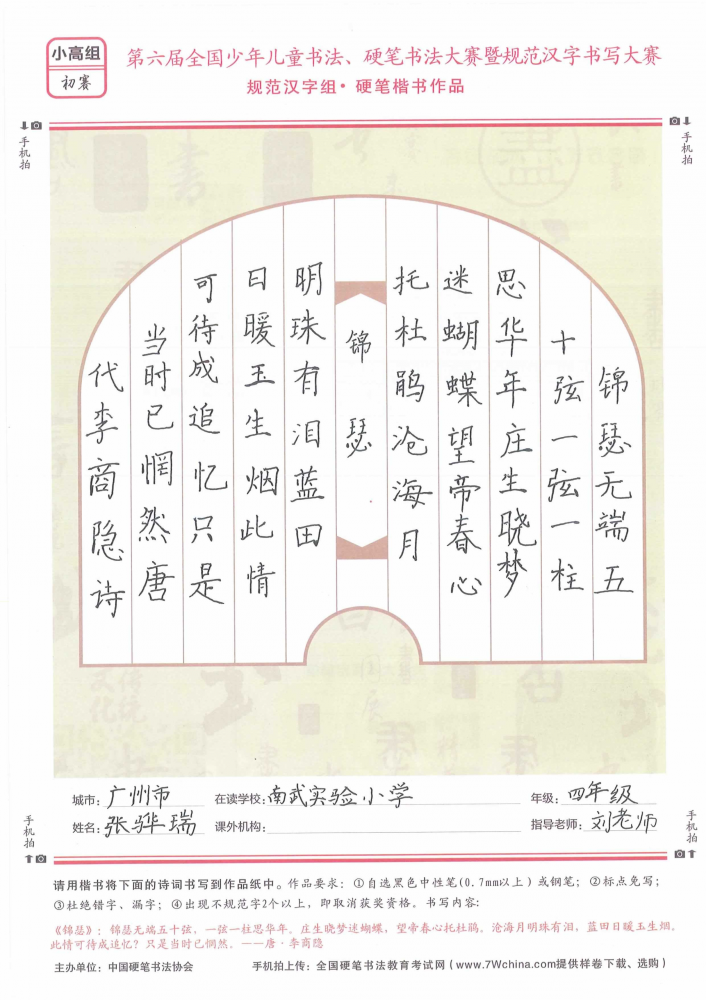 小高组
初赛
第六届全国少年儿童书法、硬笔书法大赛暨规范汉字书写大赛
规范汉字组·硬笔楷书作品
手机拍
手机拍
锦瑟无端五
十弦一弦一柱
思华年庄生晓梦
迷蝴蝶望帝春心
托杜鹃沧海月
锦瑟
明珠有泪蓝田
日暖玉生烟此情
可待成追忆只是
当时已惘然唐
代李商隐诗
城市：广州市 在读学校：南武实验小学 年级：四年级
姓名：张骅瑞 课外机构： 指导老师：刘老师
手机拍
手机拍
请用楷书将下面的诗词书写到作品纸中。作品要求：①自选黑色中性笔(0.7mm以上）或钢笔；②标点免写；
③杜绝错字、漏字；④出现不规范字2个以上，即取消获奖资格。书写内容：
《锦瑟》：锦瑟无端五十弦，一弦一柱思华年。庄生晓梦迷蝴蝶，望帝春心托杜鹃。沧海月明珠有泪，蓝田日暖玉生烟。
此情可待成追忆？只是当时已惘然。——唐·李商隐
主办单位：中国硬笔书法协会 手机拍上传：全国硬笔书法教育考试网（www.7Wchina.com提供样卷下载、选购）